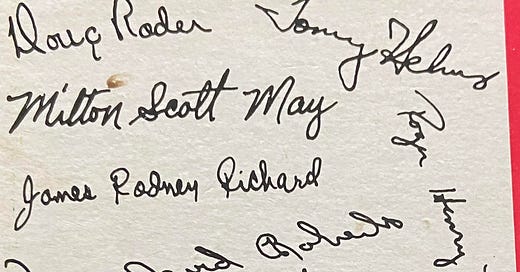 Doug Rader
Tommy Helms
Milton Scott May
Roger
James Rodney Richard
Henry
David Roberts